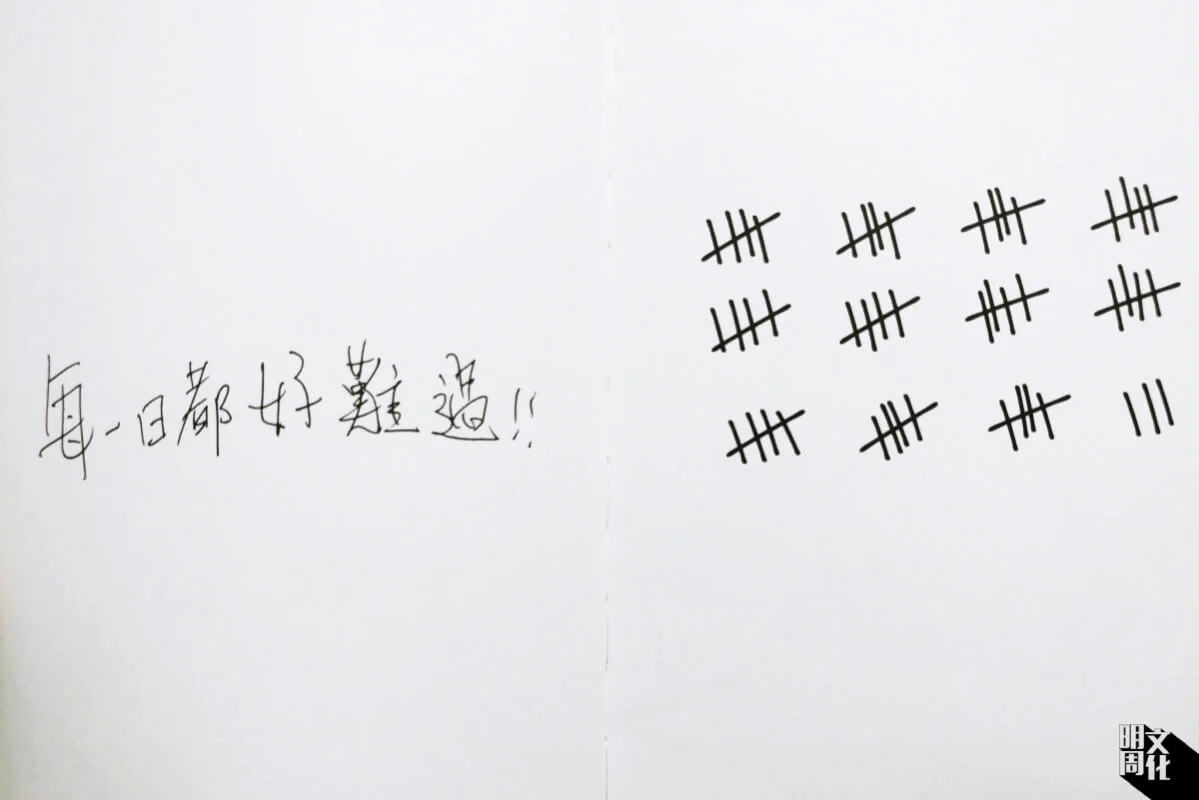 每一日都好難過!!
明周
文化